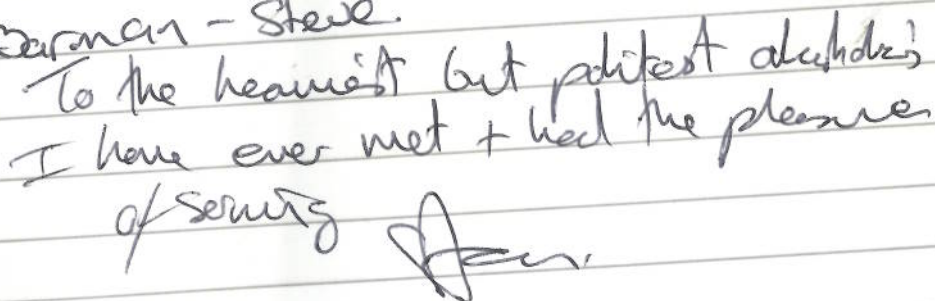 Barman - Steve.
To the heaviest but politest alcoholics
I have ever met + had the pleasure
of serving